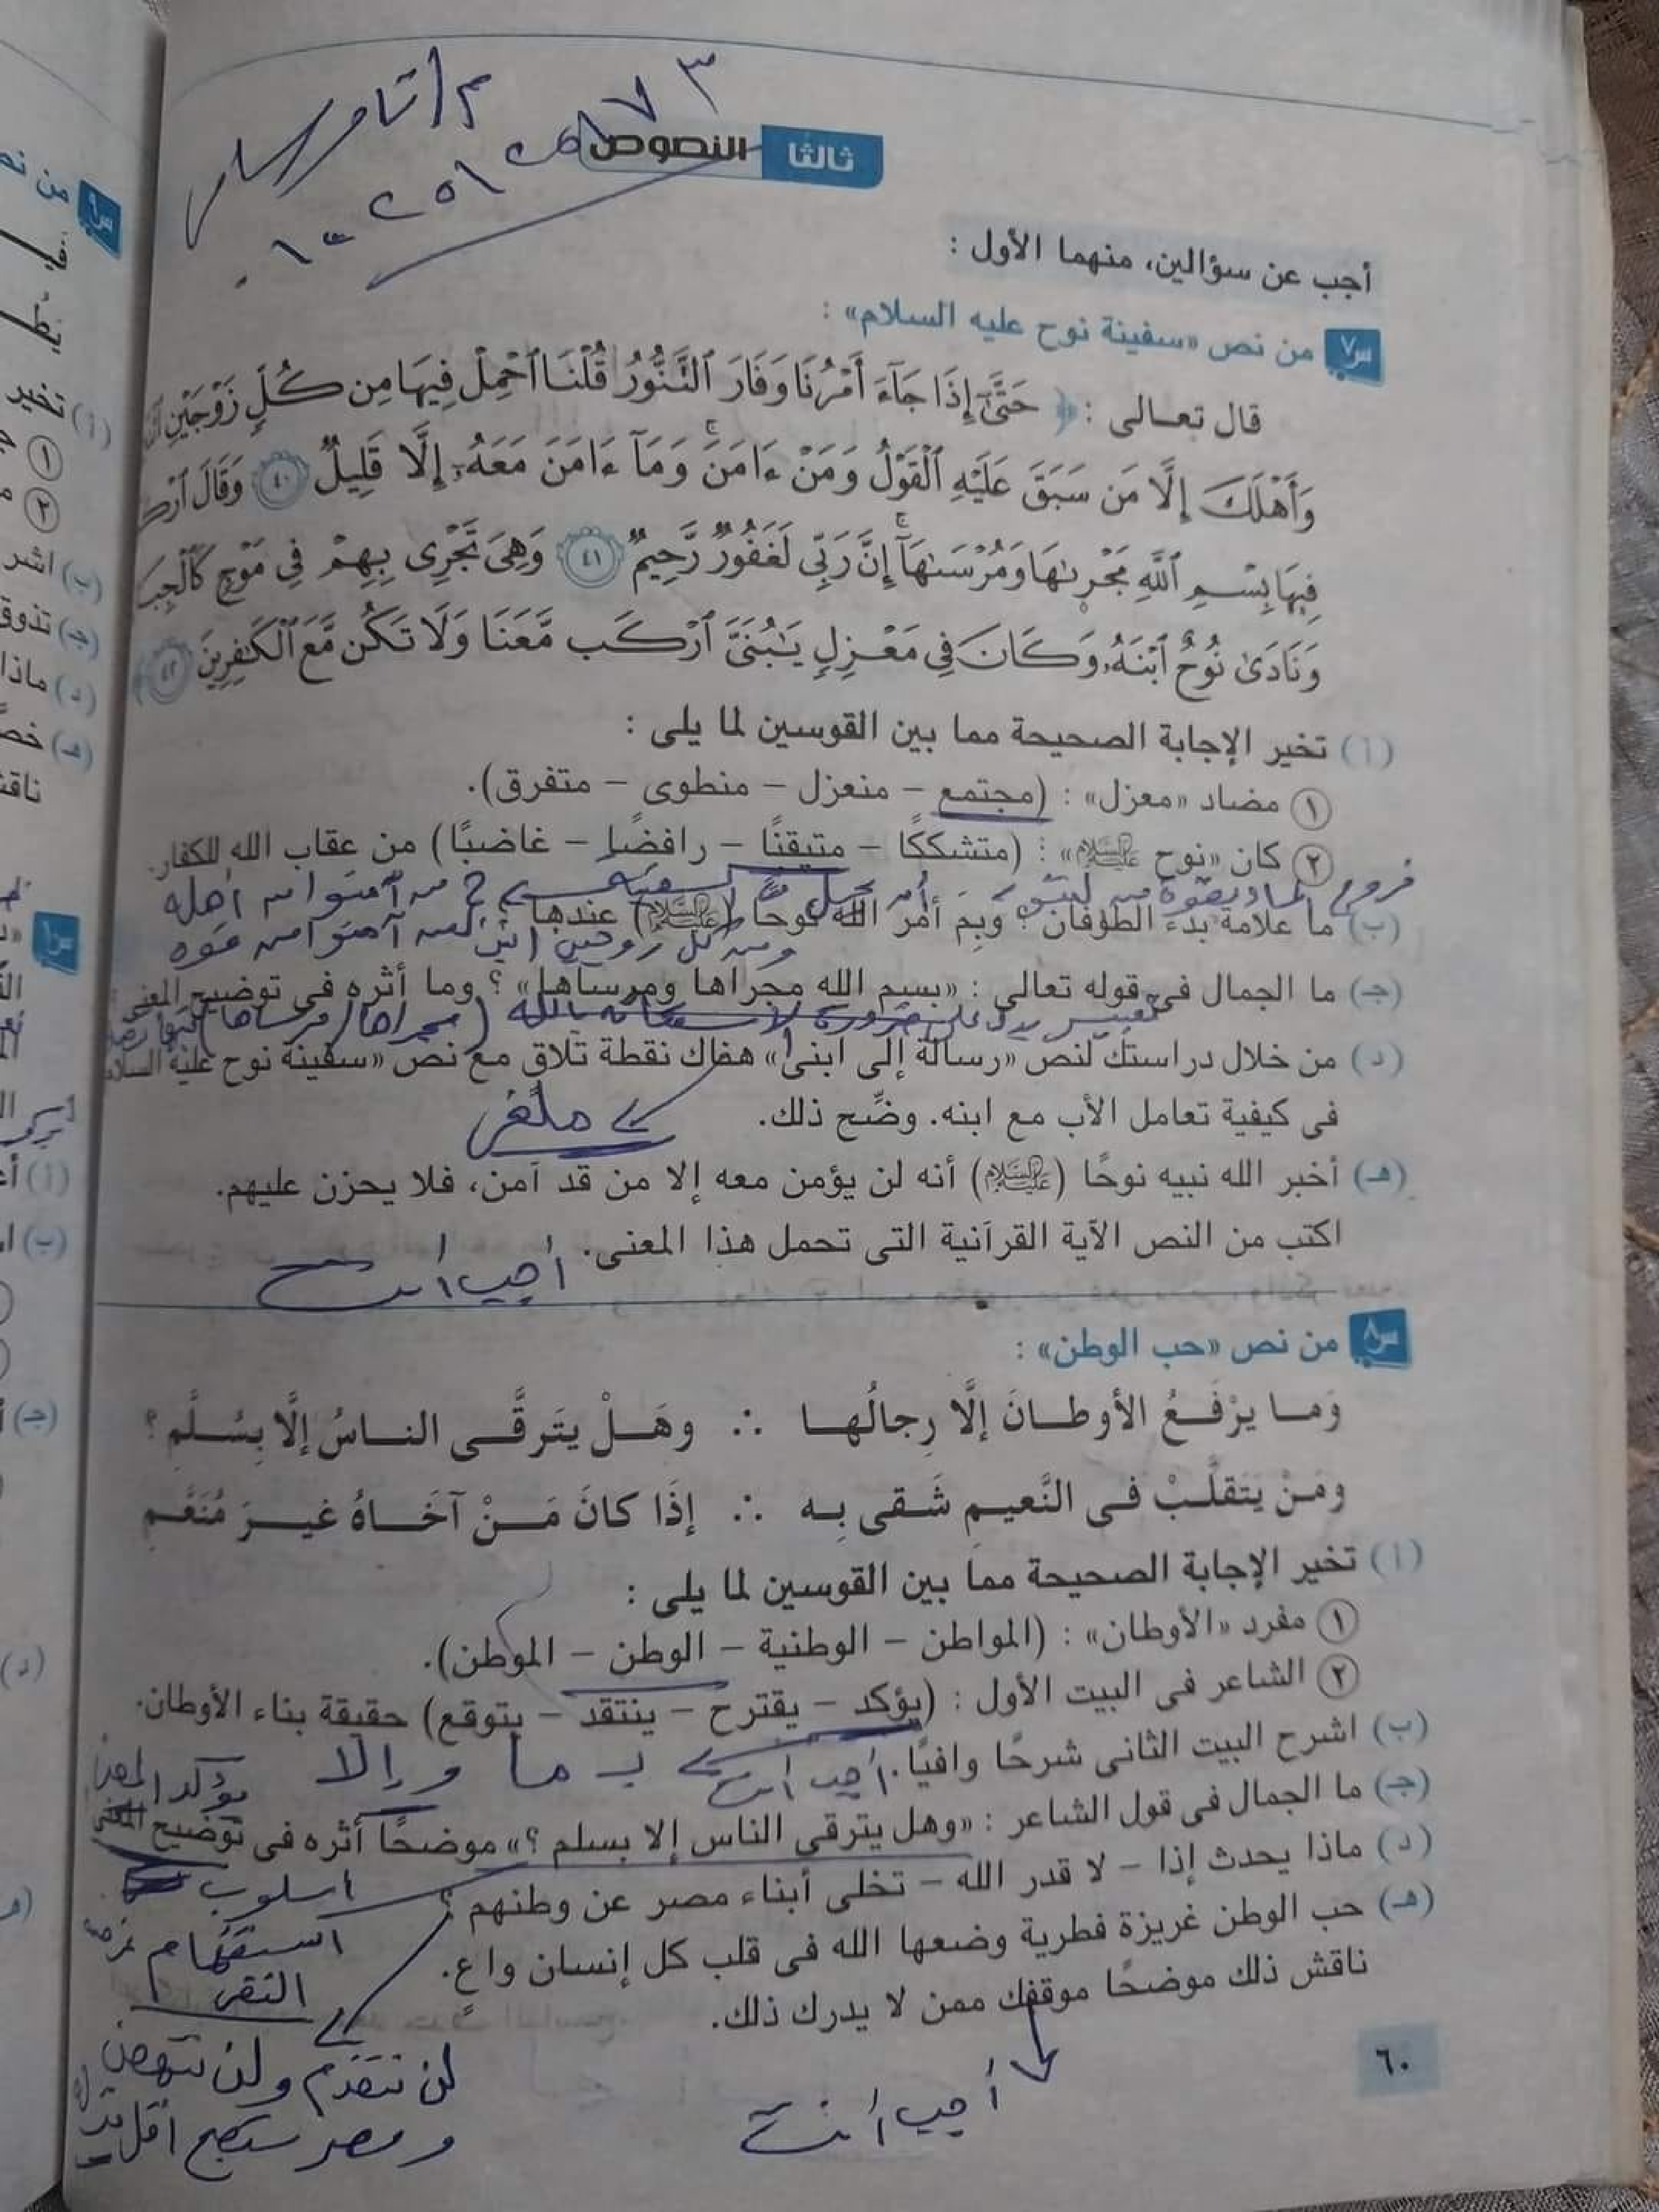 ثالثا النصوص
م/تامر
أجب عن سؤالين، منهما الأول :
س٧ من نص «سفينة نوح عليه السلام» :
قال تعالى : ﴿ حَتَّىٰٓ إِذَا جَآءَ أَمْرُنَا وَفَارَ ٱلتَّنُّورُ قُلْنَا ٱحْمِلْ فِيهَا مِن كُلٍّ زَوْجَيْنِ
وَأَهْلَكَ إِلَّا مَن سَبَقَ عَلَيْهِ ٱلْقَوْلُ وَمَنْ ءَامَنَ ۚ وَمَآ ءَامَنَ مَعَهُۥٓ إِلَّا قَلِيلٌ ٤٠ وَقَالَ
فِيهَا بِسْمِ ٱللَّهِ مَجْر۪ىٰهَا وَمُرْسَىٰهَآ ۚ إِنَّ رَبِّى لَغَفُورٌ رَّحِيمٌ ٤١ وَهِىَ تَجْرِى بِهِمْ فِى مَوْجٍ
وَنَادَىٰ نُوحٌ ٱبْنَهُۥ وَكَانَ فِى مَعْزِلٍ يَٰبُنَىَّ ٱرْكَب مَّعَنَا وَلَا تَكُن مَّعَ ٱلْكَٰفِرِينَ ٤٢
(أ) تخير الإجابة الصحيحة مما بين القوسين لما يلى :
١ مضاد «معزل» : (مجتمع – منعزل – منطوى – متفرق).
٢ كان «نوح عليه السلام» : (متشككًا – متيقنًا – رافضًا – غاضبًا) من عقاب الله للكفار.
من آمنوا من أهله
(ب) ما علامة بدء الطوفان ؟ وبِمَ أمر الله نوحًا (عليه السلام) عندها ؟
ومن كل زوجين اثنين آمنوا من قومه
(جـ) ما الجمال فى قوله تعالى : «بسم الله مجراها ومرساها» ؟ وما أثره فى توضيح المعنى
تعبير يدل على ضرورة الاستعانة بالله (مجراها / مرساها)
(د) من خلال دراستك لنص «رسالة إلى ابنى» هناك نقطة تلاق مع نص «سفينة نوح عليه السلام
فى كيفية تعامل الأب مع ابنه. وضِّح ذلك.
ملغى
(هـ) أخبر الله نبيه نوحًا (عليه السلام) أنه لن يؤمن معه إلا من قد آمن، فلا يحزن عليهم.
اكتب من النص الآية القرآنية التى تحمل هذا المعنى.
أجب أنت
س٨ من نص «حب الوطن» :
وَمـا يرْفَـعُ الأوطـانَ إلَّا رِجالُهـا ∴ وهَـلْ يتَرقَّـى النـاسُ إلَّا بِسُـلَّمِ ؟
ومَـنْ يَتَقلَّـبْ فـى النَّعيـمِ شَـقى بِـه ∴ إذَا كانَ مَـنْ آخَـاهُ غيـرَ مُنَعَّـمِ
(أ) تخير الإجابة الصحيحة مما بين القوسين لما يلى :
١ مفرد «الأوطان» : (المواطن – الوطنية – الوطن – الموطن).
٢ الشاعر فى البيت الأول : (يؤكد – يقترح – ينتقد – يتوقع) حقيقة بناء الأوطان.
(ب) اشرح البيت الثانى شرحًا وافيًا.
أجب أنت
بـ ما وإلا
يؤكد المعنى
(جـ) ما الجمال فى قول الشاعر : «وهل يترقى الناس إلا بسلم ؟» موضحًا أثره فى توضيح المعنى
أسلوب
(د) ماذا يحدث إذا – لا قدر الله – تخلى أبناء مصر عن وطنهم ؟
استفهام غرضه
(هـ) حب الوطن غريزة فطرية وضعها الله فى قلب كل إنسان واعٍ.
النفى
ناقش ذلك موضحًا موقفك ممن لا يدرك ذلك.
لن تتقدم ولن تنهض
ومصر ستصبح أقل
أجب أنت
٦٠
س٩ من نص
(أ) تخير
١
٢
(ب) اشر
(جـ) تذوق
(د) ماذا
(هـ)
ناقش
س١٠
(أ)
(ب)
(جـ)
(د)